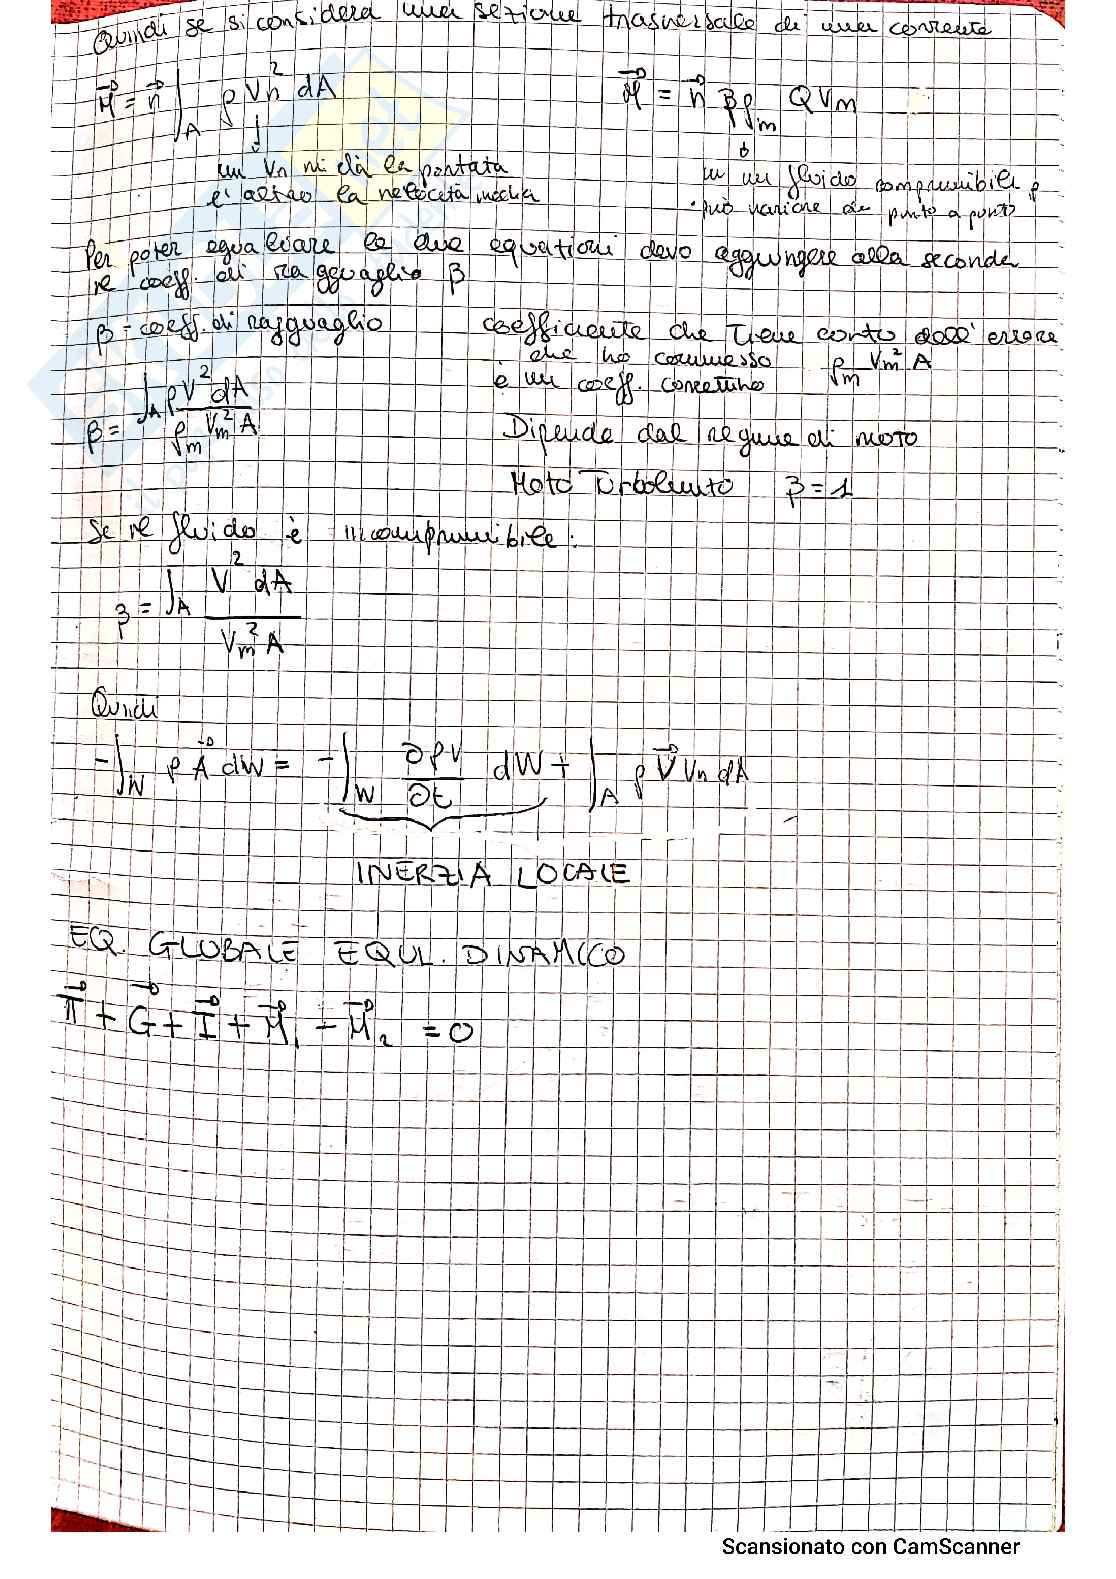 Quindi se si considera una sezione trasversale di una corrente
M⃗ = n⃗ ∫_A ρ Vn² dA
M⃗ = n⃗ β ρm Q Vm
un Vn mi dà la portata
e l'altro la velocità media
in un fluido comprimibile ρ
può variare da punto a punto
Per poter eguagliare le due equazioni devo aggiungere alla seconda
il coeff. di ragguaglio β
β = coeff. di ragguaglio
coefficiente che tiene conto dell'errore
che ho commesso ρm Vm² A
è un coeff. correttivo
β = ∫_A ρ V² dA / ρm Vm² A
Dipende dal regime di moto
Moto Turbolento β = 1
Se il fluido è incomprimibile:
β = ∫_A V² dA / Vm² A
Quindi
- ∫_W ρ A⃗ dW = - ∫_W ∂ρV/∂t dW + ∫_A ρ V⃗ Vn dA
INERZIA LOCALE
EQ. GLOBALE EQUL. DINAMICO
Π⃗ + G⃗ + I⃗ + M⃗₁ - M⃗₂ = 0
Scansionato con CamScanner